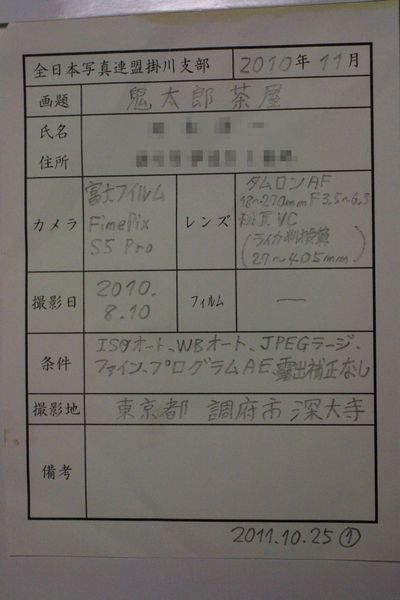 全日本写真連盟掛川支部 2010年11月
画題 鬼太郎茶屋
氏名
住所
カメラ 富士フイルム
FinePix
S5 Pro
レンズ タムロンAF
18~270mm F3.5~6.3
VC
(ライカ判換算
27~405mm)
撮影日 2010.
8.10
フィルム —
条件 ISOオート、WBオート、JPEGラージ、
ファイン、プログラムAE、露出補正なし
撮影地 東京都 調府市 深大寺
備考
2011.10.25 ①